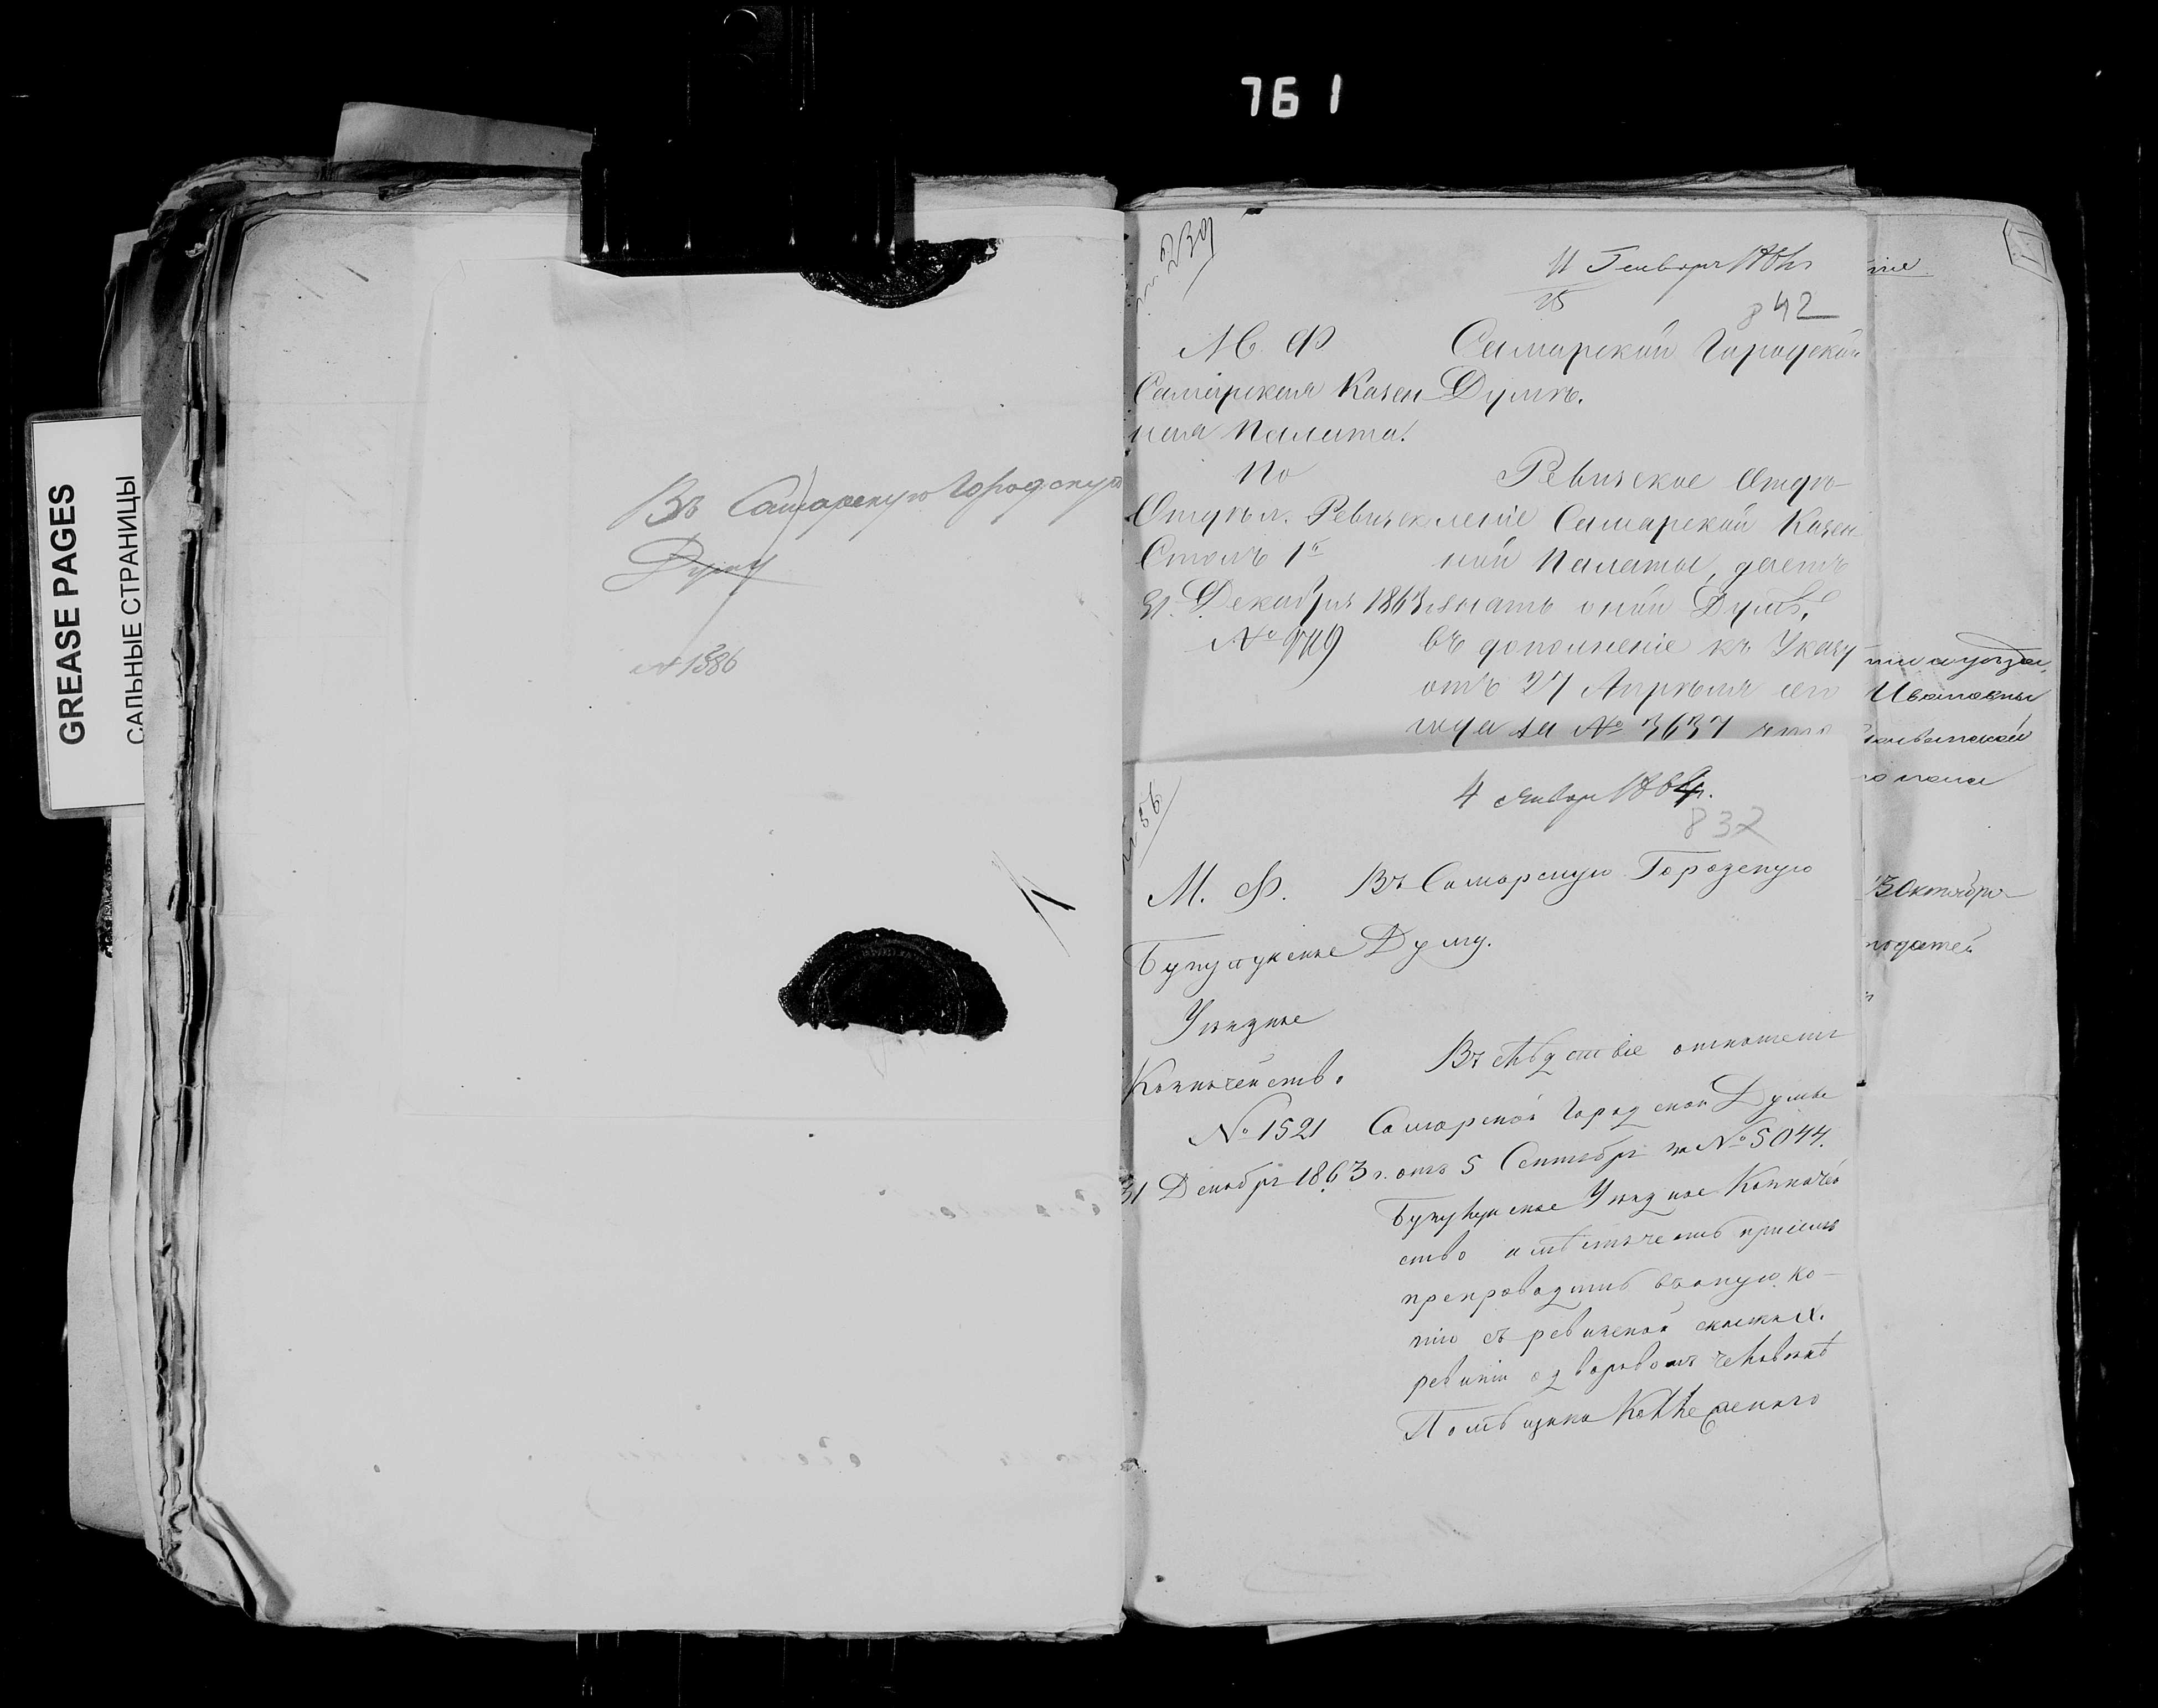 761
GREASE PAGES
САЛЬНЫЕ СТРАНИЦЫ
Въ Самарскую Городскую
Думу
№ 1386
239
11 Генваря
25
842
М. Ф.
Самарская Казен
ная Палата.
По
Отдѣл. Ревизск
Столъ 1й
31 Декабря 1863
№ 9719
Самарской Городской
Думѣ.
Ревизское Отдѣ-
леніе Самарской Казен
ной Палаты, даетъ
знать оной Думѣ,
въ дополненіе къ Указу
отъ 27 Апрѣля сего
года за № 3637 что
56
4 Января 1864 г.
837
М. Ф.
Бузулукское
Уѣздное
Казначейство
№ 1521
31 Декабря 1863 г.
Въ Самарскую Городскую
Думу.
Въ слѣдствіе отношенія
Самарской Городской Думы
отъ 5 Сентября за № 5044.
Бузулукское Уѣздное Казначей
ство имѣетъ честь при семъ
препроводить въ оную ко-
пію съ ревизской сказки X.
ревизіи о дворовомъ человѣкѣ
Помѣщика
Ивановны
13 Октября
податей